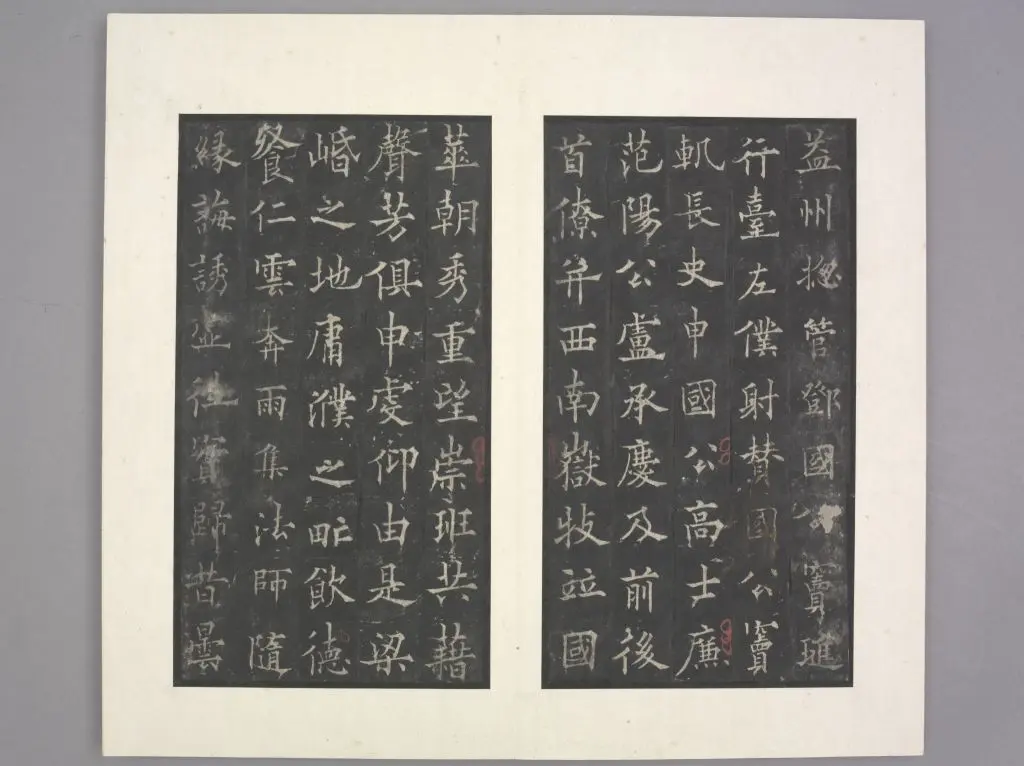 益州揔管鄧國公竇璡
行臺左僕射贊國公竇
軌長史申國公高士廉
范陽公盧承慶及前後
首僚并西南嶽牧並國
華朝秀重望崇班共藉
聲芳俱申虔仰由是梁
崏之地庸濮之甿飲德
飡仁雲奔雨集法師隨
緣誨誘虛往實歸昔曇